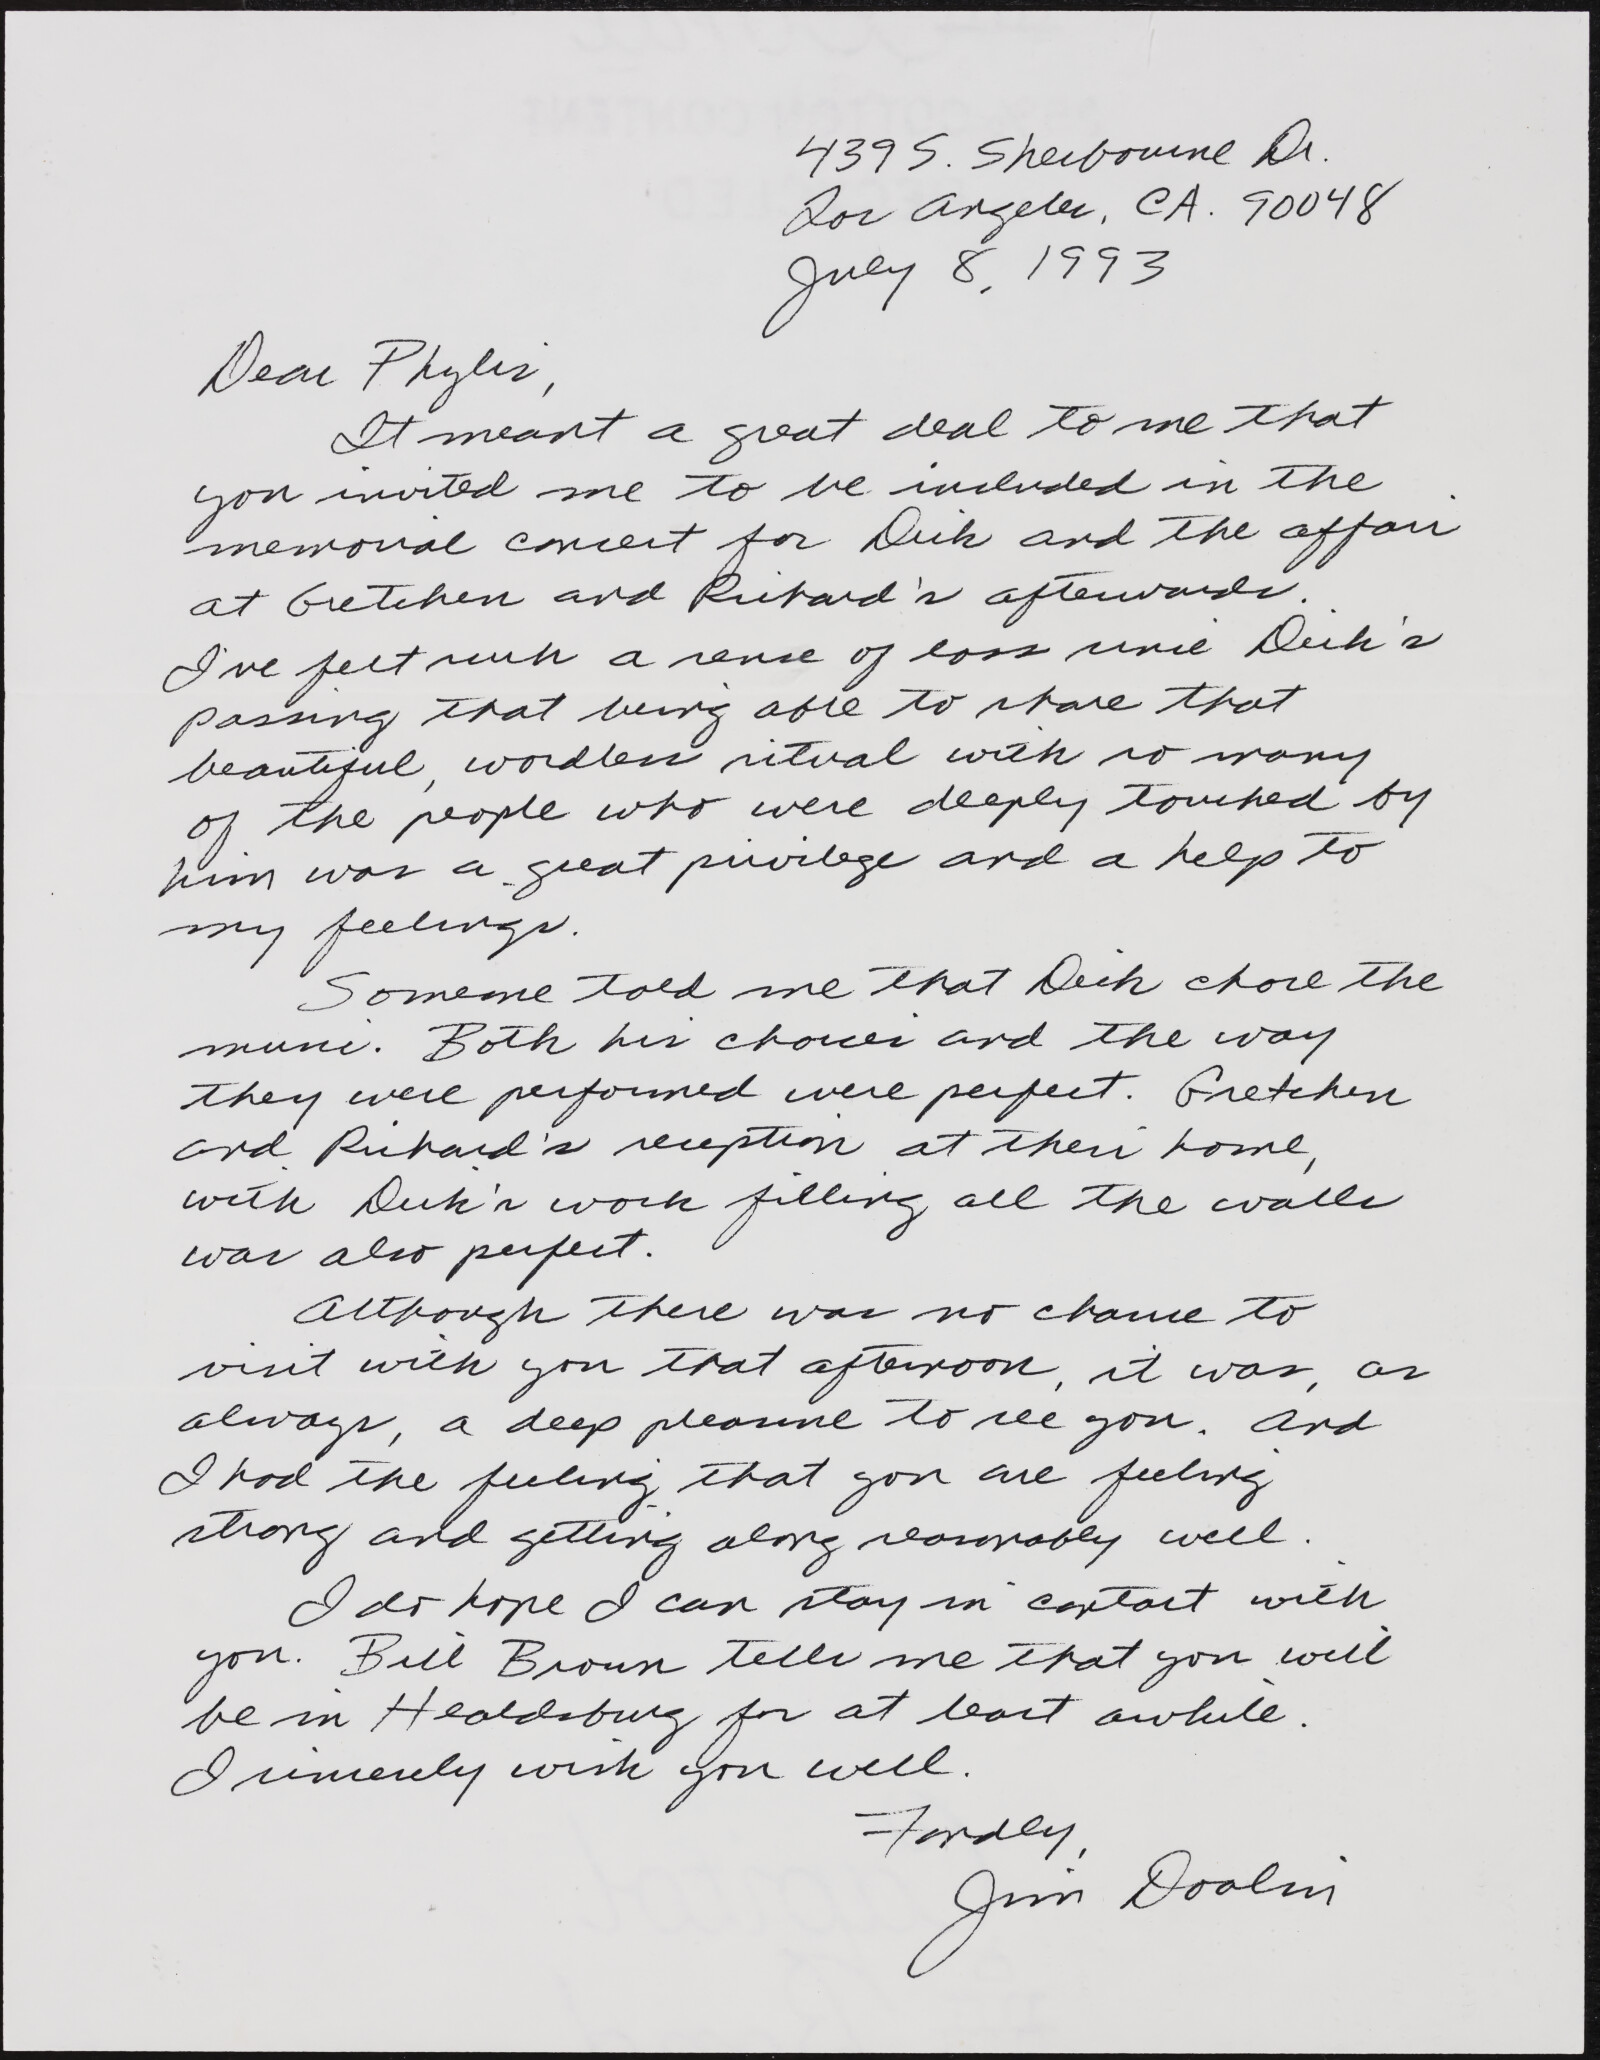 439 S. Sherbourne Dr.
Los Angeles, CA. 90048
July 8, 1993
Dear Phylis,
It meant a great deal to me that
you invited me to be included in the
memorial concert for Dick and the affair
at Gretchen and Richard's afterwards.
I've felt such a sense of loss since Dick's
passing that being able to share that
beautiful, wordless ritual with so many
of the people who were deeply touched by
him was a great privilege and a help to
my feelings.
Someone told me that Dick chose the
music. Both his choices and the way
they were performed were perfect. Gretchen
and Richard's reception at their home,
with Dick's work filling all the walls
was also perfect.
Although there was no chance to
visit with you that afternoon, it was, as
always, a deep pleasure to see you. And
I had the feeling that you are feeling
strong and getting along reasonably well.
I do hope I can stay in contact with
you. Bill Brown tells me that you will
be in Healdsburg for at least awhile.
I sincerely wish you well.
Fondly,
Jim Doolin